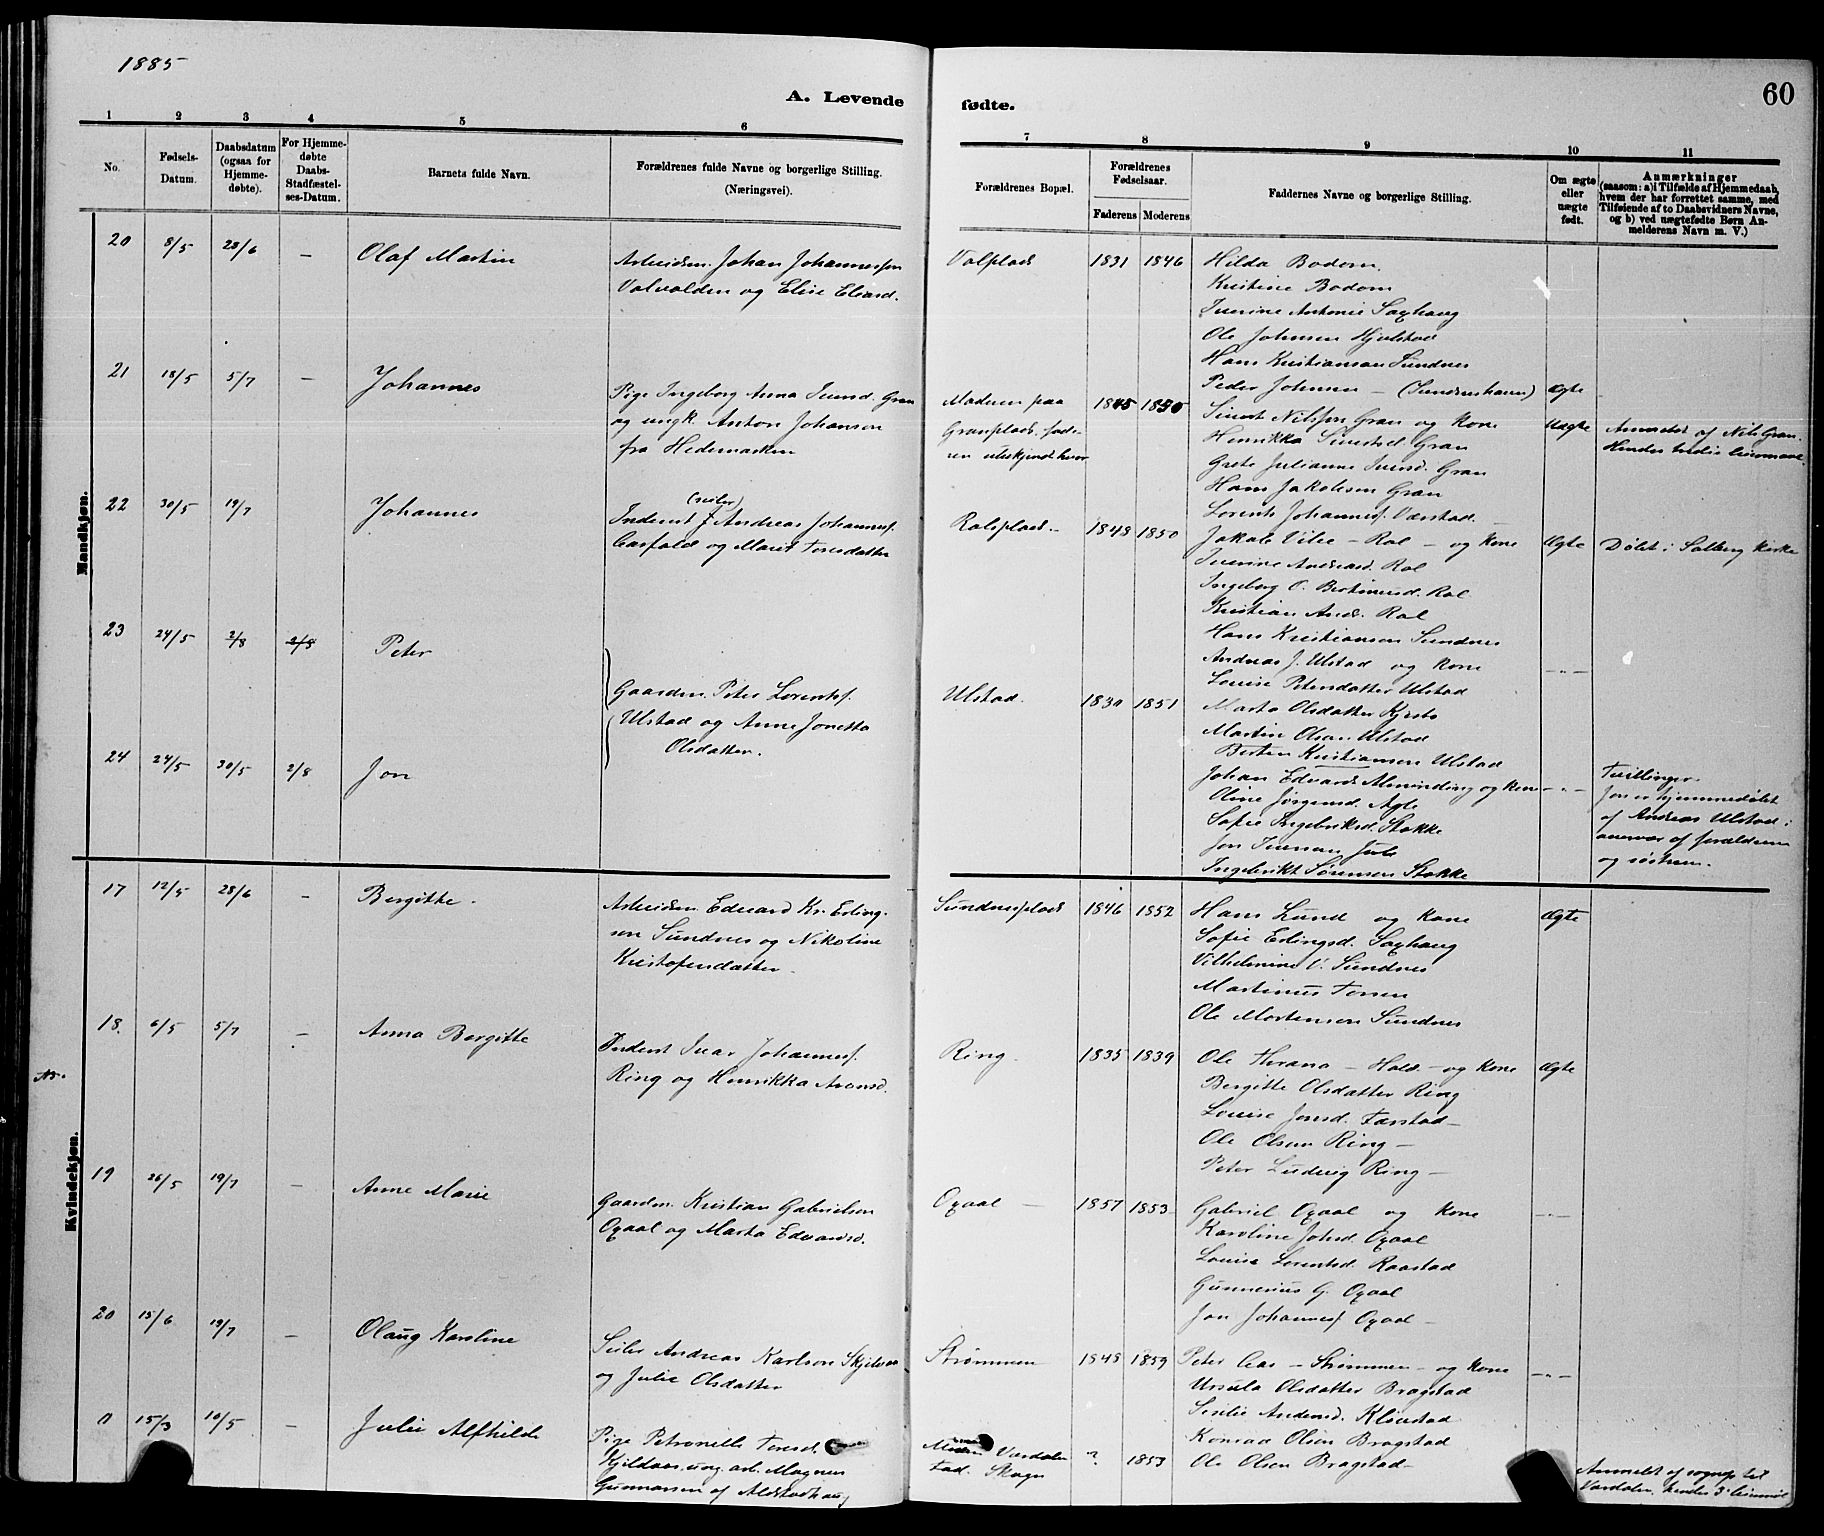 1885
60
A. Levende
fødte.
1 2 3 4 5 6 7 8 9 10 11
No.
Fødsels-
Datum.
Daabsdatum
(ogsaa for
Hjemme-
døbte).
For Hjemme-
døbte
Daabs-
Stadfæstel-
ses-Datum.
Barnets fulde Navn.
Forældrenes fulde Navne og borgerlige Stilling.
(Næringsvei).
Forældrenes Bopæl.
Forældrenes
Fødselsaar.
Faderens Moderens
Faddernes Navne og borgerlige Stilling.
Om ægte
eller
uægte
født.
Anmærkninger
(saasom: a) i Tilfælde af Hjemmedaab,
hvem der har forrettet samme, med
Tilføiende af to Daabsvidners Navne,
og b) ved uægtefødte Børn An-
melderens Navn m. V.)
Mandkjøn.
20 8/5 28/6 — Olaf Martin
Arbeidsm. Johan Johannessen
Valvolden og Elise Elvard.
Valplads 1831 1846
Hilda Bodom.
Kristine Bodom
Iverine Antonie Saxhaug
Ole Johnsen Hjelstad
Hans Kristiansen Sundnes
Peder Johnsen — (Sundneshavn) Ægte
21 18/5 5/7 — Johannes
Pige Ingeborg Anna Iversd. Gran
og ungk. Anton Johansen
fra Hedemarken
Moderen paa
Granplads, fade-
ren ubekjendt hvor
1845 1850
Sivert Nilssen Gran og Kone
Henrikka Sivertsd. Gran
Grete Julianne Iversd. Gran
Hans Jakobsen Gran
Lorents Johannesf. Værstad.
Uægte
Anmeldt af Nils Gran.
22 30/5 19/7 Johannes
(seiler)
Inderst Andreas Johannesf.
og Marit Toresdatter
Rolsplads. 1848 1850
Jakob Vibe — Rol — og Kone
Iverine Andreasd. Rol
Ingeborg O. Bertinusd. Rol
Kristian Andr. Rol
Hans Kristiansen Sundnes
Ægte
Døbt i Salberg Kirke
23 24/5 2/8 2/8 Peter
Gaardm. Peter Lorentsf.
Ulstad og Anne Jonetta
Olsdatter.
Ulstad. 1830 1851
Andreas J. Ulstad og Kone
Louise Petersdatter Ulstad
Marta Olsdatter Kjesbo
Martin Olsen Ulstad
Kristiansen Ulstad
24 24/5 30/5 2/8 Jon
Johan Edvards. Alminding og Kone —"—
Oline Jørgensd. Agle
Sofie Ingebriktsd. Stokke
Jon Iversen Jule
Ingebrikt Sørensen Stokke
Tvillinger.
Jon er hjemmedøbt
af Andreas Ulstad i
overvær af forældrene
og søstrene.
Kvindekjøn.
17 12/5 28/6 — Bergitte.
Arbeidsm. Edvard Kr. Erling-
sen Sundnes og Nikoline
Kristofersdatter.
Sundnesplads 1846 1852
Hans Lund og Kone
Sofie Erlingsd. Saxhaug
Vilhelmine V. Sundnes
Martinus Torsen
Ole Mortensen Sundnes
Ægte
18. 6/5 5/7 — Anna Bergitte
Inderst Ivar Johannesf.
Ring og Henrikka Aronsd.
Ring. 1835 1839
Ole Herano — Hols — og Kone
Bergitte Olsdatter Ring
Louise Jonsd. Farstad
Ole Olsen Ring —
Peter Ludvig Ring —
Ægte
19 26/5 19/7 — Anne Marie
Gaardm. Kristian Gabrielsen
Oxaal og Marta Edvardsd.
Oxaal — 1857 1853
Gabriel Oxaal og Kone
Karoline Johsd. Oxaal
Louise Lorentsd. Raastad
Gunnerius G. Oxaal
Jon Johannesf. Oxaal —
—"—
20 15/6 19/7 — Olaug Karoline
Seiler Andreas Karlsen
og Julie Olsdatter
Strømmen 1848 1859
Peter Aas — Strømmen — og Kone
Ursula Olsdatter Bragstad
Andersd. Klovstad
Konrad Olsen Bragstad
Ole Olsen Bragstad
—"—
15/3 10/5 — Julie Alfhilde
Pige Petronelle Toresd.
ung. arb. Magnus
Gunnarsen af Alstadhaug
Værdalen
Fad. Skogn
? 1853
Anmeldt af sognepr. til
Værdalen.